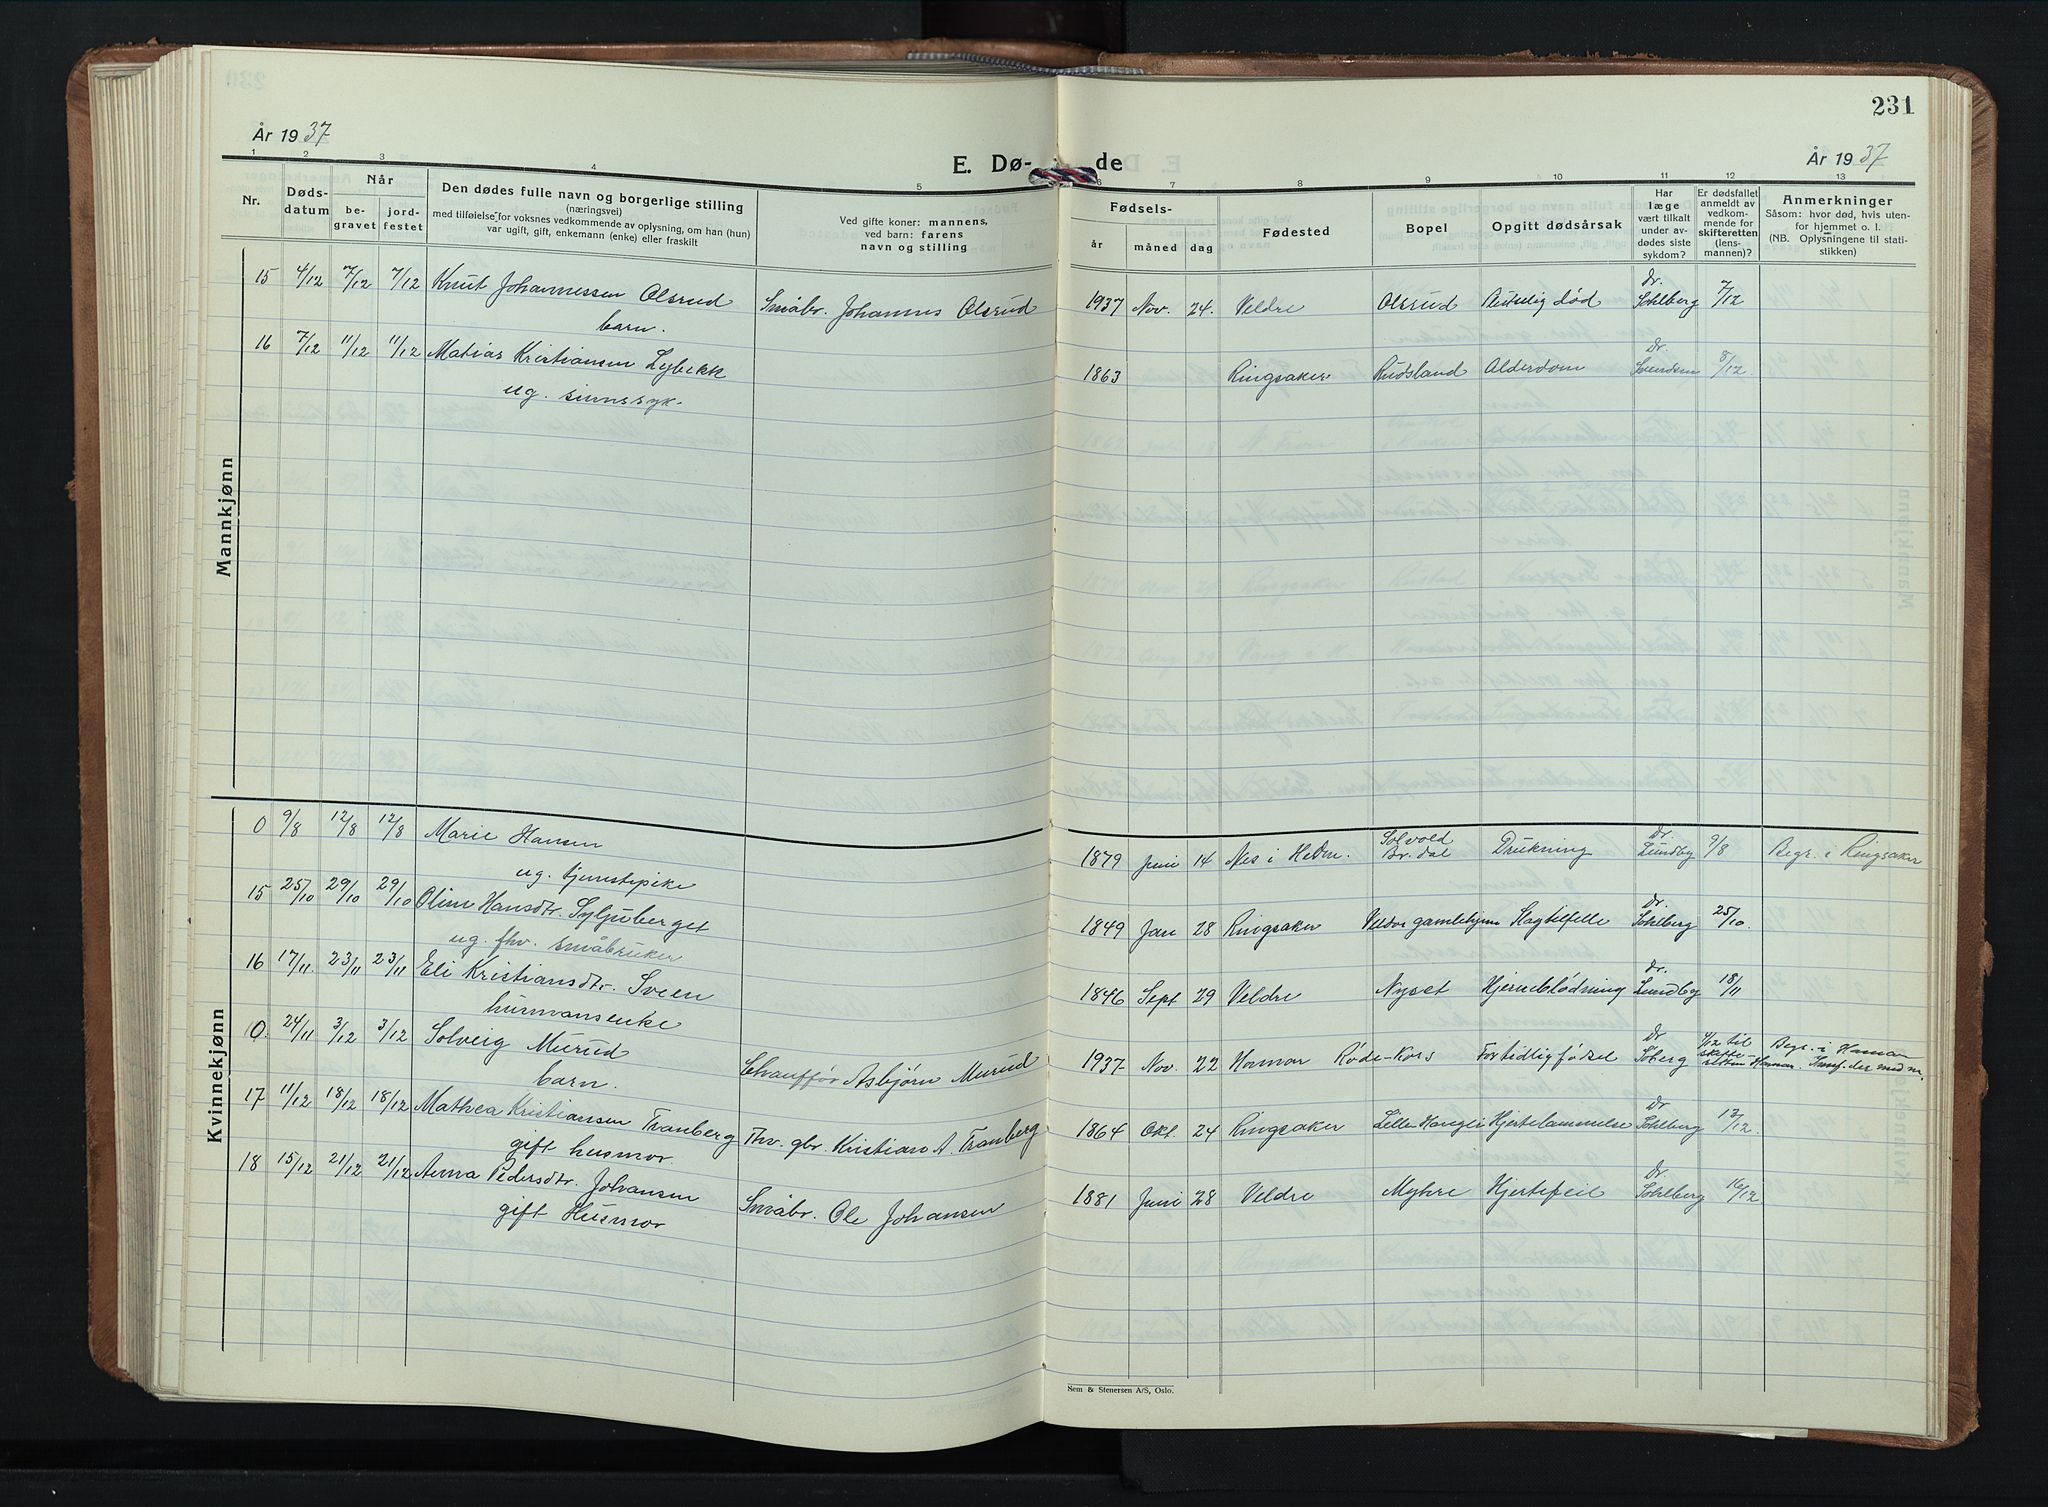 231
År 1937
E. Dø- de
År 1937
1 2 3 4 5 6 7 8 9 10 11 12 13
Nr.
Dødsdatum
Når
begravet
jordfestet
Den dødes fulle navn og borgerlige stilling
(næringsvei)
med tilføielse for voksnes vedkommende av oplysning, om han (hun)
var ugift, gift, enkemann (enke) eller fraskilt
Ved gifte koner: mannens,
ved barn: farens
navn og stilling
Fødsels-
år måned dag
Fødested
Bopel
Opgitt dødsårsak
Har
læge
vært tilkalt
under av-
dødes siste
sykdom?
Er dødsfallet
anmeldt av
vedkom-
mende for
skifteretten
(lens-
mannen)?
Anmerkninger
Såsom: hvor død, hvis uten-
for hjemmet o. l.
(NB. Oplysningene til stati-
stikken)
Mannkjønn
15 4/12 7/12 7/12 Knut Johannessen Olsrud Småbr. Johannes Olsrud 1937 Nov. 24. Veldre Olsrud Plutselig død Dr. Sohlberg 7/12
barn.
16 7/12 11/12 11/12 Matias Kristiansen Lybekk 1863 Ringsaker Rudsland Alderdom Dr. Svendsen 8/12
ug. sinnssyk.
Kvinnekjønn
0 9/8 12/8 12/8 Marie Hansen 1879 Juni 14 Nes i Hedm. Solvold Br.dal Drukning Dr. Lundby 9/8 Begr. i Ringsaker
ug. tjenestepike
15 25/10 29/10 29/10 Oline Hansdtr. Syljuberget 1849 Jan 28 Ringsaker Veldre gamlehjem Slagtilfelle Dr. Sohlberg 25/10
ug. fhv. småbruker
16 17/11. 23/11 23/11 Eli Kristiansdtr. Sveen 1846 Sept. 29 Veldre Nyset Hjerneblødning Dr. Lundby 18/11
husmansenke
0. 24/11 3/12 3/12 Solveig Murud Chauffør Asbjørn Murud 1937 Nov. 22 Hamar Røde-Kors For tidlig fødsel Dr Søberg 4/12 til skifteretten Hamar. Begr. i Hamar
barn.
17 11/12 18/12 18/12 Mathea Kristiansen Tranberg Fhv. gbr. Kristian A. Tranberg 1864 Okt. 24 Ringsaker Lille Haugli Hjertelammelse Dr Sohlberg 13/12.
gift husmor.
18 15/12 21/12 21/12 Anna Pedersdtr. Johansen Småbr. Ole Johansen 1881 Juni 28 Veldre Myhre Hjertefeil Dr Sohlberg 16/12
gift Husmor
Sem & Stenersen A/S, Oslo.